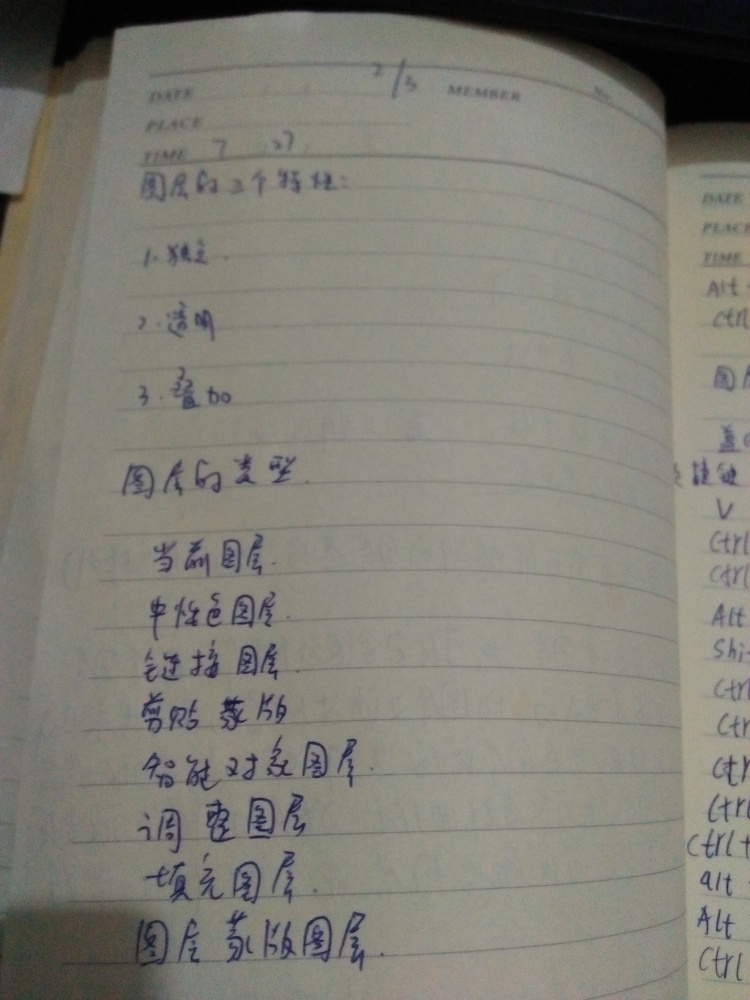 2/3
DATE
MEMBER
No.
PLACE
TIME 7 27
图层的三个特性:
1. 独立.
2. 透明
3. 叠加
图层的类型.
当前图层.
中性色图层.
链接图层.
剪贴蒙版
智能对象图层.
调整图层
填充图层.
图层蒙版图层.
DATE
PLACE
TIME
Alt
Ctrl
图层
盖
捷键
V
Ctrl
Ctrl
Alt
Shi
Ctrl
Ctr
Ctr
Ctrl
Ctrl+
alt
Alt
Ctrl